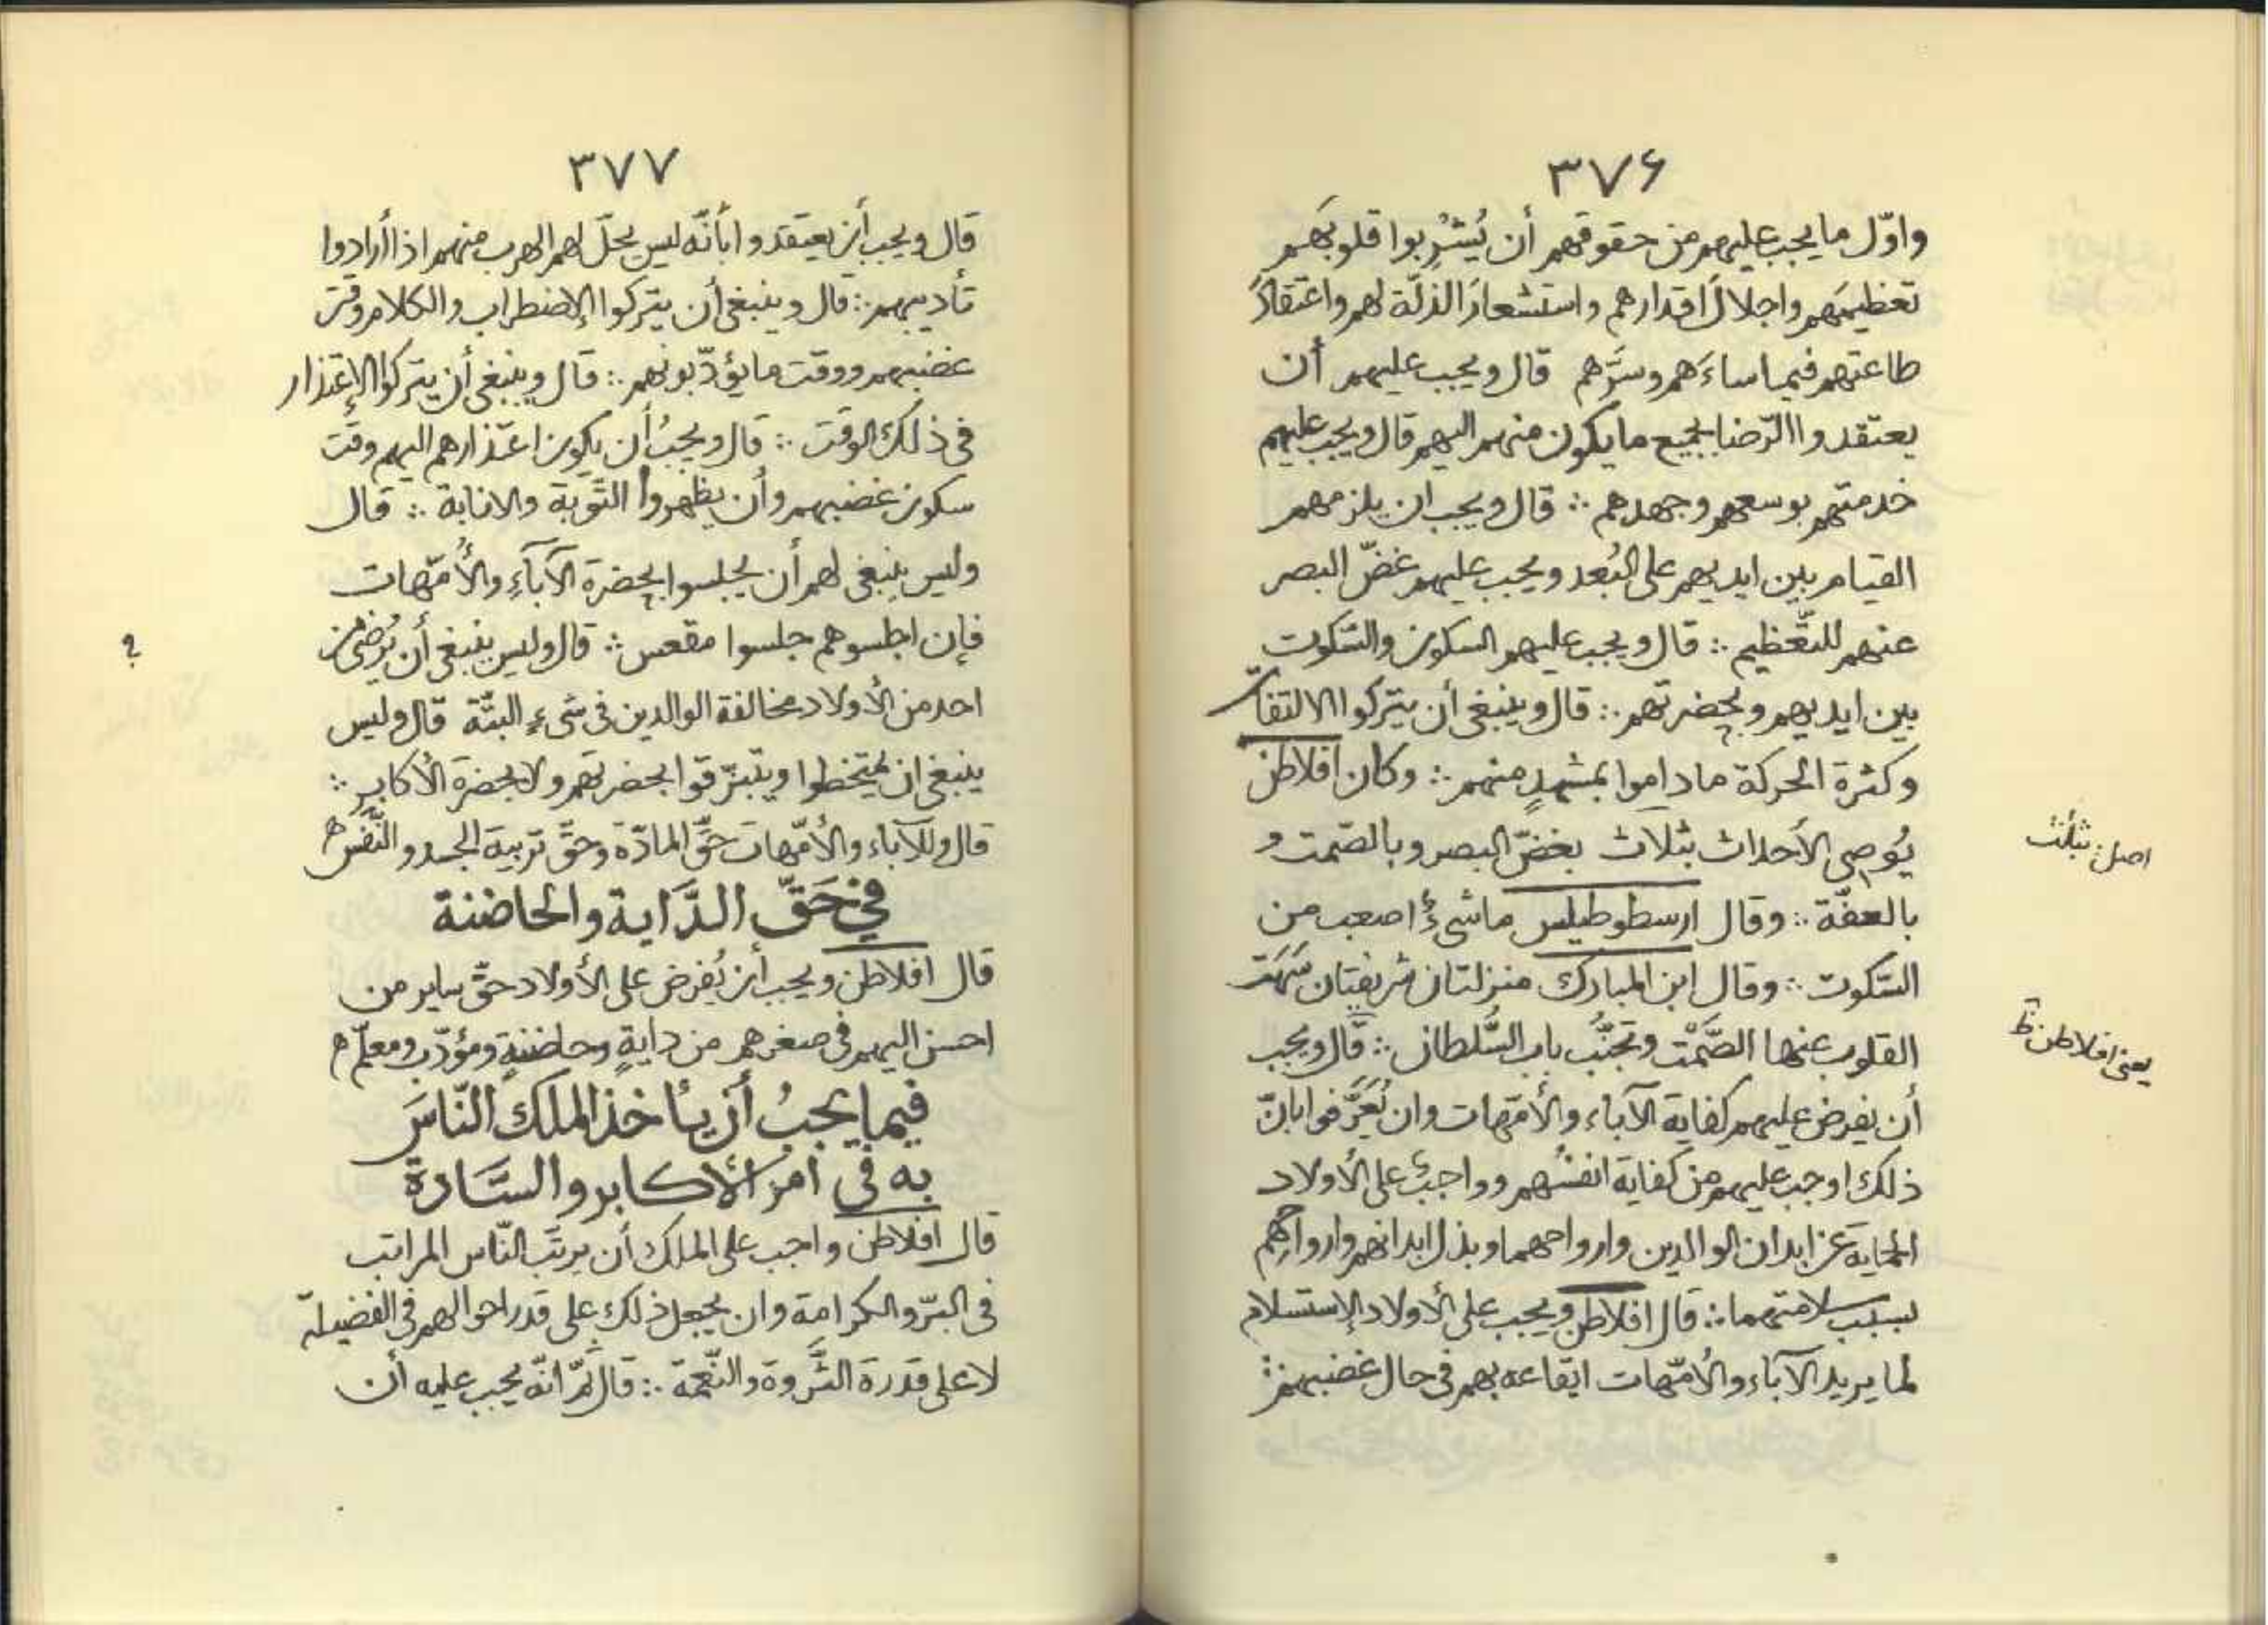 ٣٧۶
واوّل ما يجب عليهم من حقوقهم أن يُشْرِبوا قلوبَهم
تعظيمَهم واجلالَ اقدارهم واستشعارَ الذلّة لهم واعتقادَ
طاعتهم فيما ساءَهم وسَرَّهم قال ويجب عليهم أن
يعتقدوا الرّضا بجميع ما يكون منهم اليهم قال ويجب عليهم
خدمتهم بوسعهم وجهدهم ⁘ قال ويجب ان يلزمهم
القيام بين ايديهم على البُعد ويجب عليهم غضّ البصر
عنهم للتّعظيم ⁘ قال ويجب عليهم السكون والسّكوت
بين ايديهم وبحضرتهم ⁘ قال وينبغى أن يتركوا الالتفات
وكثرة الحركة ما داموا بمشهدٍ منهم ⁘ وكان افلاطن
يُوصى الأحداث بثلاث بغضّ البصر وبالصّمت و
بالعفّة ⁘ وقال ارسطوطيلس ما شىءٌ اصعب من
السّكوت ⁘ وقال ابن المبارك منزلتان شريفتان سَهَت
القلوب عنها الصَّمْت وتجنُّب باب السُّلطان ⁘ قال ويجب
أن يفرض عليهم كفاية الآباء والأمّهات وان يُعَرَّفوا بانّ
ذلك اوجب عليهم من كفاية انفسُهم وواجبٌ على الأولاد
الحماية عن ابدان الوالدين وارواحهما وبذل ابدانهم وارواحهم
بسبب سلامتهما ⁘ قال افلاطن ويجب على الأولاد الإستسلام
لما يريد الآباء والأمّهات ايقاعه بهم فى حال غضبهم ⁘
اصل: بثلٰث
يعنى افلاطن ظ
٣٧٧
قال ويجب أن يعتقدوا بأنّه ليس يحلّ لهم الهرب منهم اذا أرادوا
تأديبهم ⁘ قال وينبغى أن يتركوا الإضطراب والكلام وقت
غضبهم ووقت ما يؤدّبونهم ⁘ قال وينبغى أن يتركوا الإعتذار
فى ذلك الوقت ⁘ قال ويجبُ أن يكون اعتذارهم اليهم وقت
سكون غضبهم وأن يظهروا التّوبة والانابة ⁘ قال
وليس ينبغى لهم أن يجلسوا بحضرة الآباءِ والأُمّهات
فإن اجلسوهم جلسوا مقعس ⁘ قال وليس ينبغى أن يُرْضى من
؟
احد من الأولاد مخالفة الوالدين فى شىءٍ البتّة قال وليس
ينبغى ان يمتخطوا ويتبزّقوا بحضرتهم ولا بحضرة الأكابر ⁘
قال وللآباء والأمّهات حقّ المادّة وحقّ تربية الجسد والنّفس ه
في حَقّ الدَّاية والحاضنة
قال افلاطن ويجب أن يُفرض على الأولاد حقّ ساير من
احسن اليهم فى صغرهم من دايةٍ وحاضنةٍ ومؤدّب ومعلّم ه
فيما يجبُ أن يأخذ الملك النّاسَ
به فى امر الأكابر والسَّادة
قال افلاطن واجب على الملك أن يرتّب النّاس المراتب
فى البرّ والكرامة وان يجعل ذلك على قدر احوالهم فى الفضيلة
لا على قدرة الثَّروة والنّعمة ⁘ قال ثمّ انّه يجب عليه أن